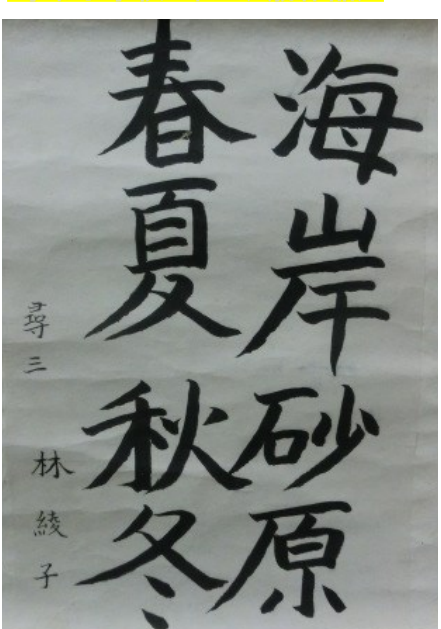 海岸砂原
春夏秋冬
尋三 林綾子